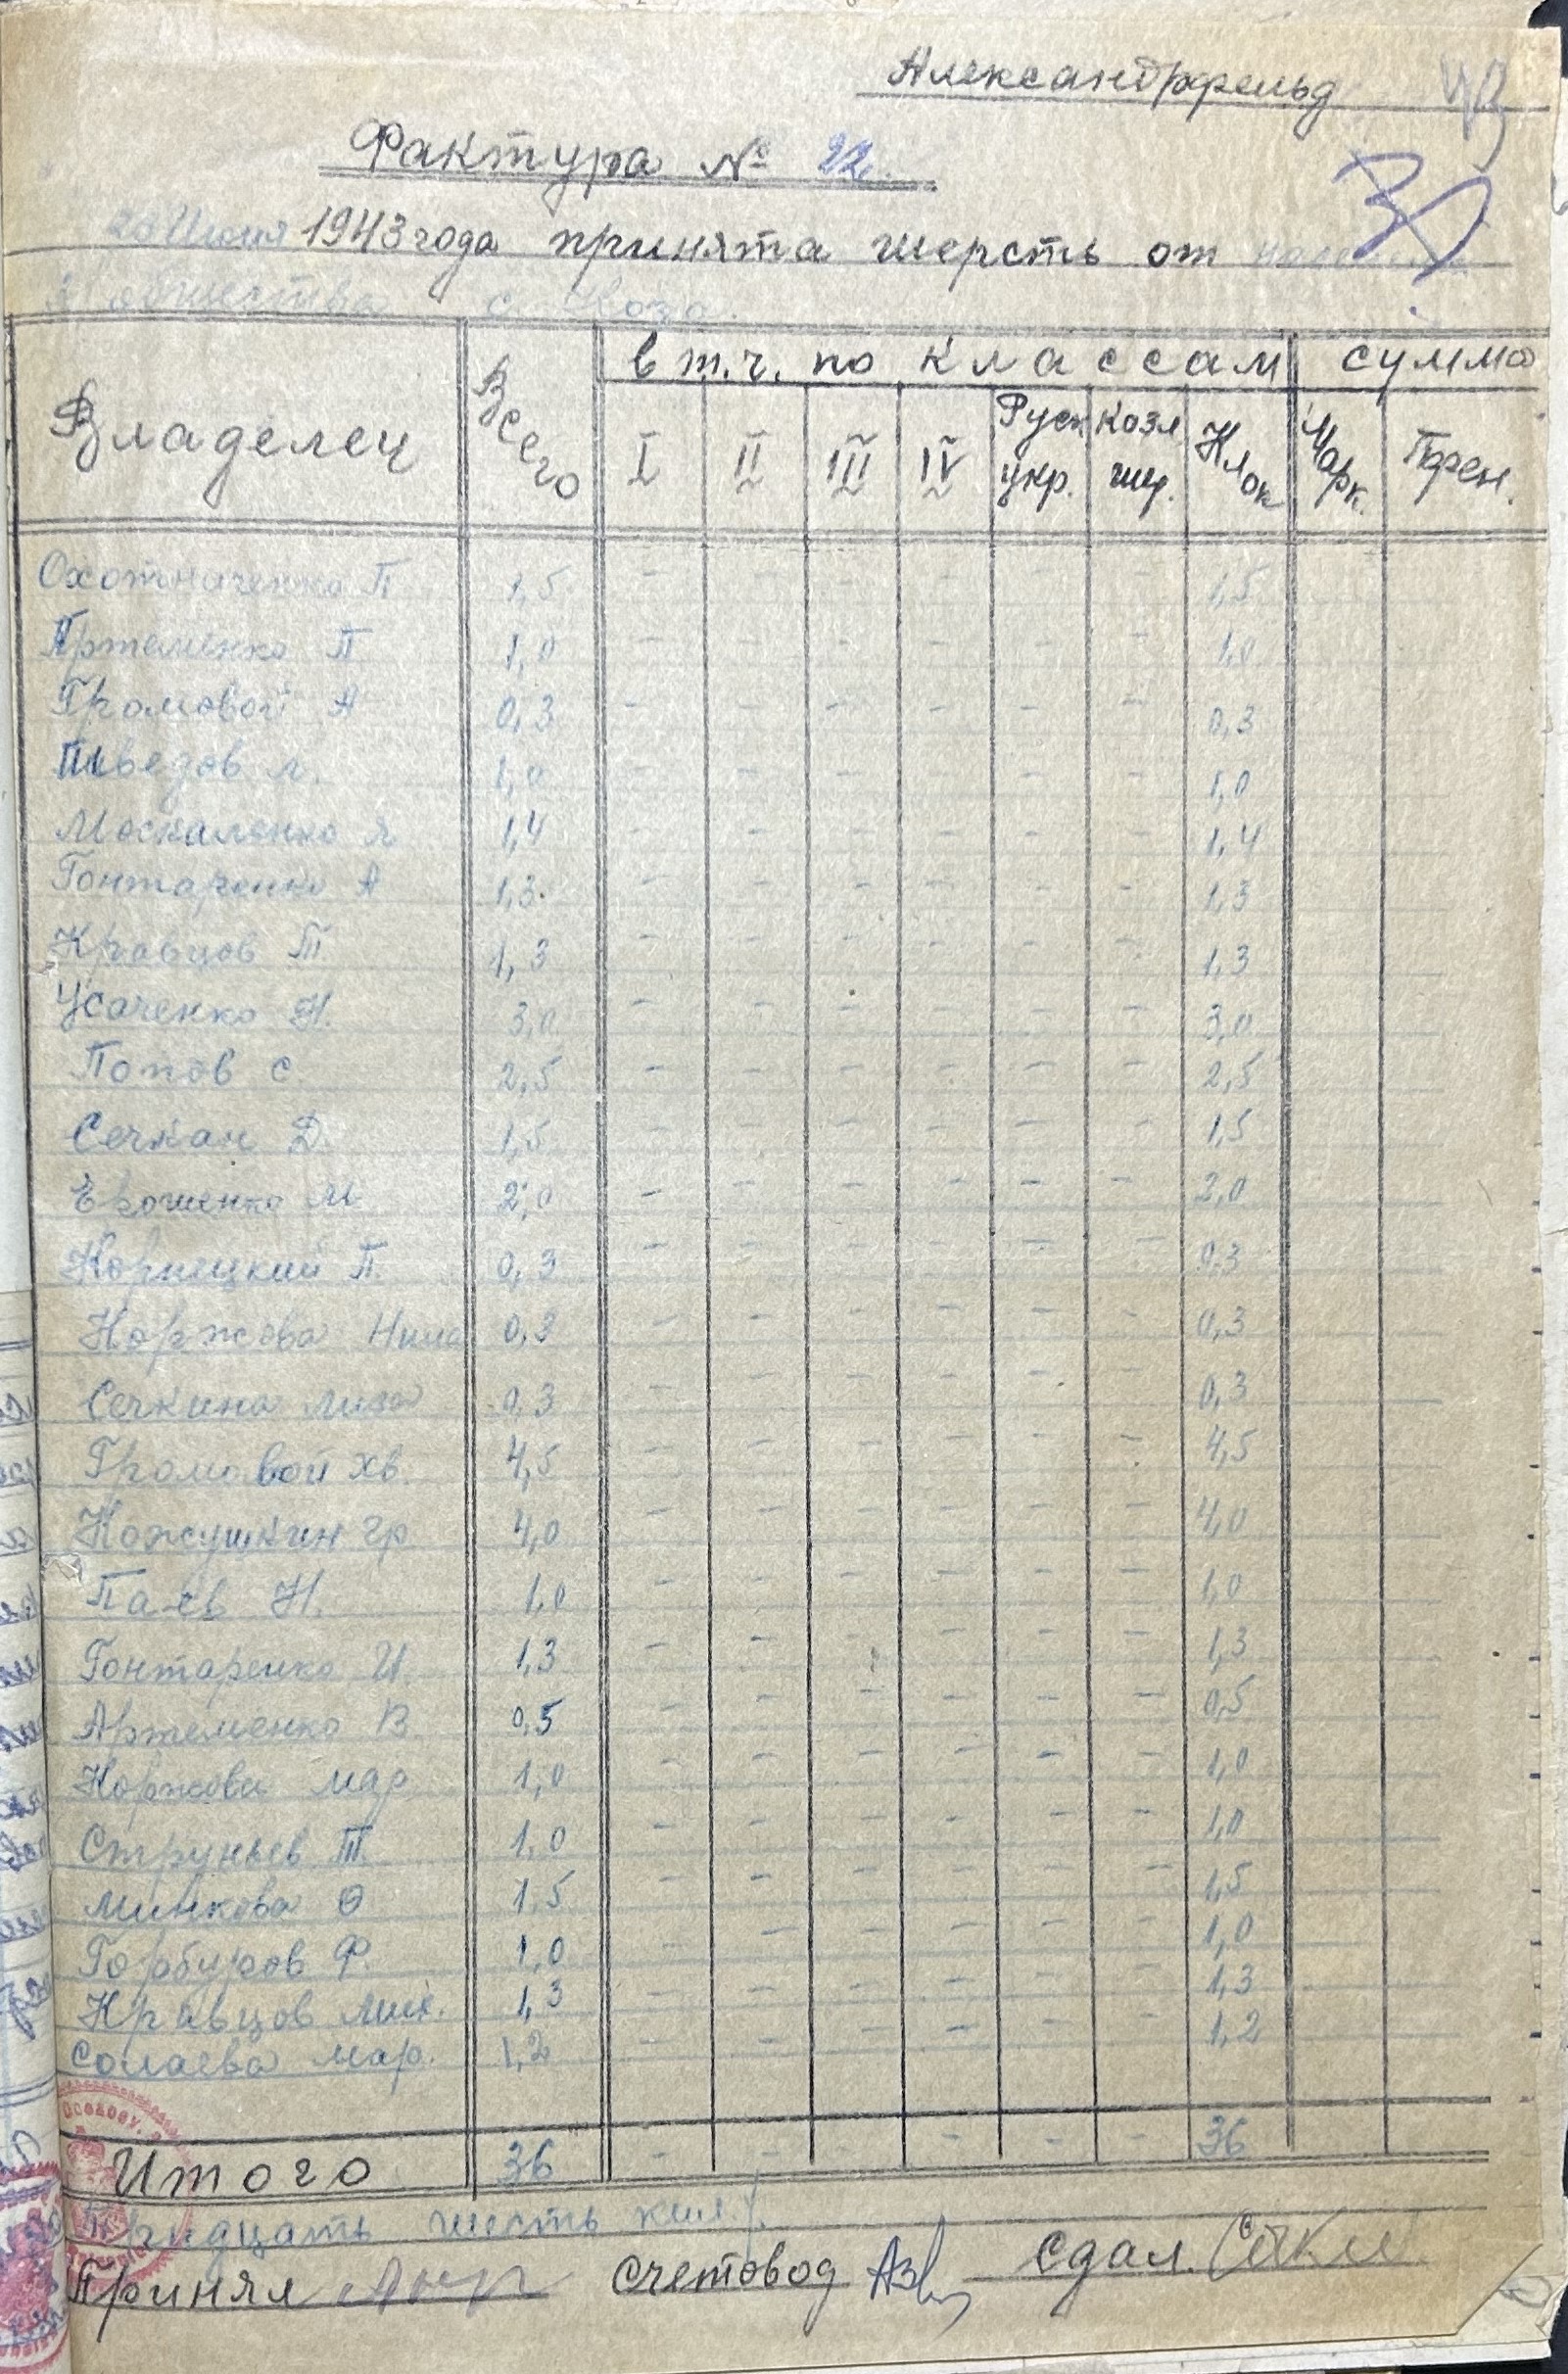 Александрфельд
Фактура № 22.
20 Июня 1943 года принята шерсть от
общества с. Коза.
Владелец Всего в т.ч. по классам сумма
I II III IV Русск укр. козл шер. Клок Марк. Пфен.
Охотниченко П 1,5 - - - - - - 1,5
Артеменко П 1,0 - - - - - - 1,0
Громовой А 0,3 - - - - - - 0,3
1,0 - - - - - - 1,0
Москаленко Я 1,4 - - - - - - 1,4
Гонтаренко А 1,3 - - - - - - 1,3
Кравцов Т. 1,3 - - - - - - 1,3
Усаченко Н. 3,0 - - - - - - 3,0
Попов С. 2,5 - - - - - - 2,5
Сечкан Д. 1,5 - - - - - - 1,5
Ерошенко М. 2,0 - - - - - - 2,0
Корнецкий П. 0,3 - - - - - - 0,3
Коржова Нина 0,3 - - - - - - 0,3
Сечкина Лиза 0,3 - - - - - - 0,3
Громовой Хв. 4,5 - - - - - - 4,5
Кожушкин Гр. 4,0 - - - - - - 4,0
Паев Н. 1,0 - - - - - - 1,0
Гонтаренко И. 1,3 - - - - - - 1,3
Артеменко В. 0,5 - - - - - - 0,5
Коржова Мар. 1,0 - - - - - - 1,0
Струньев Т. 1,0 - - - - - - 1,0
Минкова О 1,5 - - - - - - 1,5
Горбуров Ф. 1,0 - - - - - - 1,0
Кравцов Мих. 1,3 - - - - - - 1,3
Солаева Мар. 1,2 - - - - - - 1,2
Итого 36 - - - - - 36
Тридцать шесть кил.
Принял Счетовод Сдал.